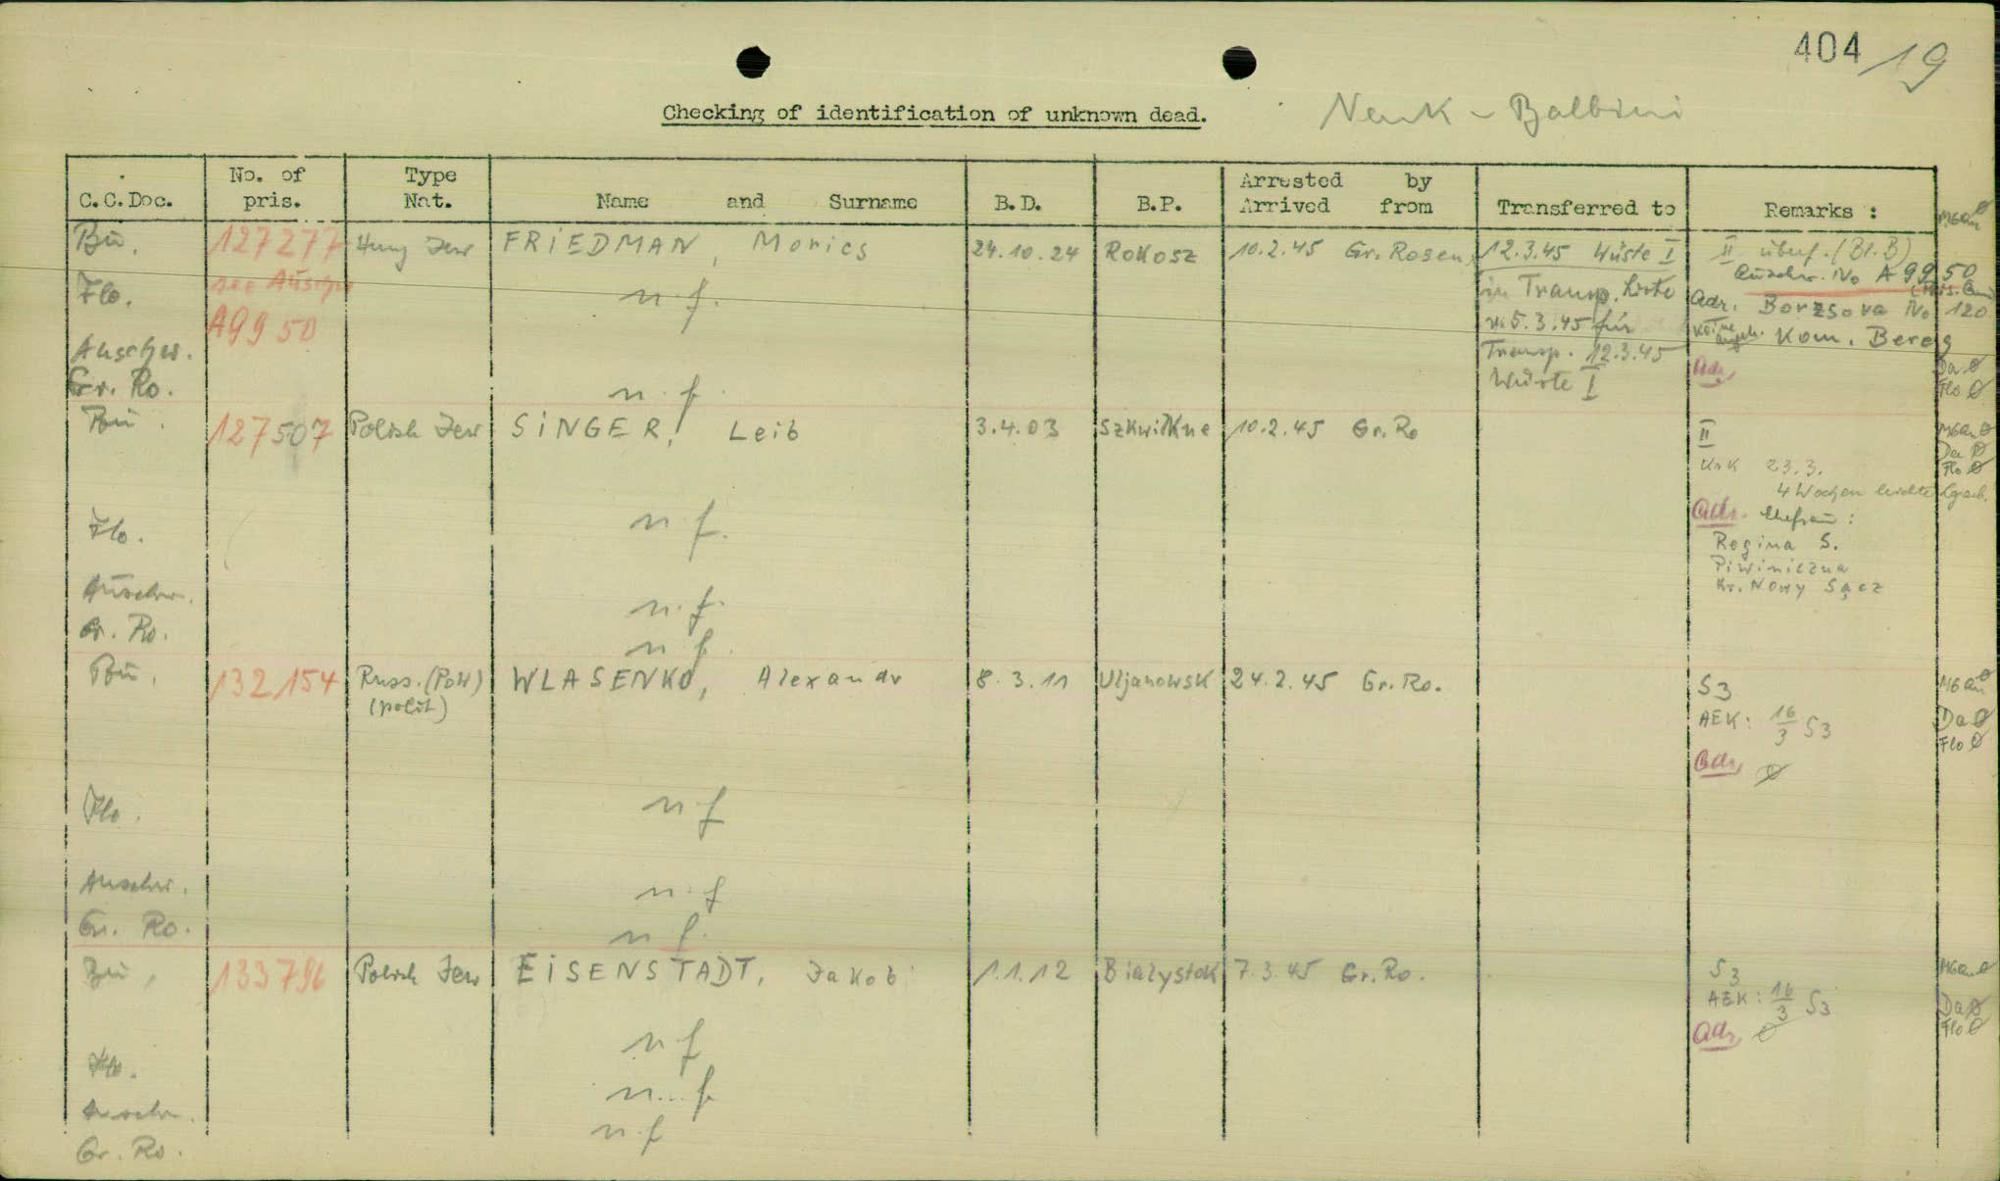 404 19
Checking of identification of unknown dead.
C.C.Doc. No. of pris. Type Nat. Name and Surname B.D. B.P. Arrested by Arrived from Transferred to Remarks :
Bu. 127277 Hung Jew FRIEDMAN, Morics 24.10.24 Rokosz 10.2.45 Gr. Rosen, 12.3.45 Wüste I II überf. (Bl. B)
Auschw. No A 9950
Flo. see Auschw n.f. in Transp. Liste Adr. Borzsova No 120
A9950 5.3.45 für Kom. Bereg
Auschw. Transp. 12.3.45 Adr. Da Ø
Gr. Ro. n.f. Wüste I Flo Ø
Bu. 127507 Polish Jew SINGER, Leib 3.4.03 10.2.45 Gr. Ro II
23.3. Flo Ø
4 Wochen leichte
Flo. n.f. Adr. Ehefrau:
Regina S.
Piwiniczna
Auschw. n.f. Kr. Nowy Sącz
Gr. Ro. n.f.
Bu. 132154 Russ. (Pow) WLASENKO, Alexandr 8.3.11 Uljanowsk 24.2.45 Gr. Ro. S3
(polit) AEK: 16/3 S3 Da Ø
Flo Ø
Adr. Ø
Flo. n.f
Auschw. n.f
Gr. Ro. n.f.
Bu. 133796 Polish Jew EISENSTADT, Jakob 1.1.12 Bialystok 7.3.45 Gr. Ro. S3
AEK: 16/3 S3 Da Ø
n.f Adr. Ø Flo Ø
Flo.
Auschw. n.f
Gr. Ro. n.f